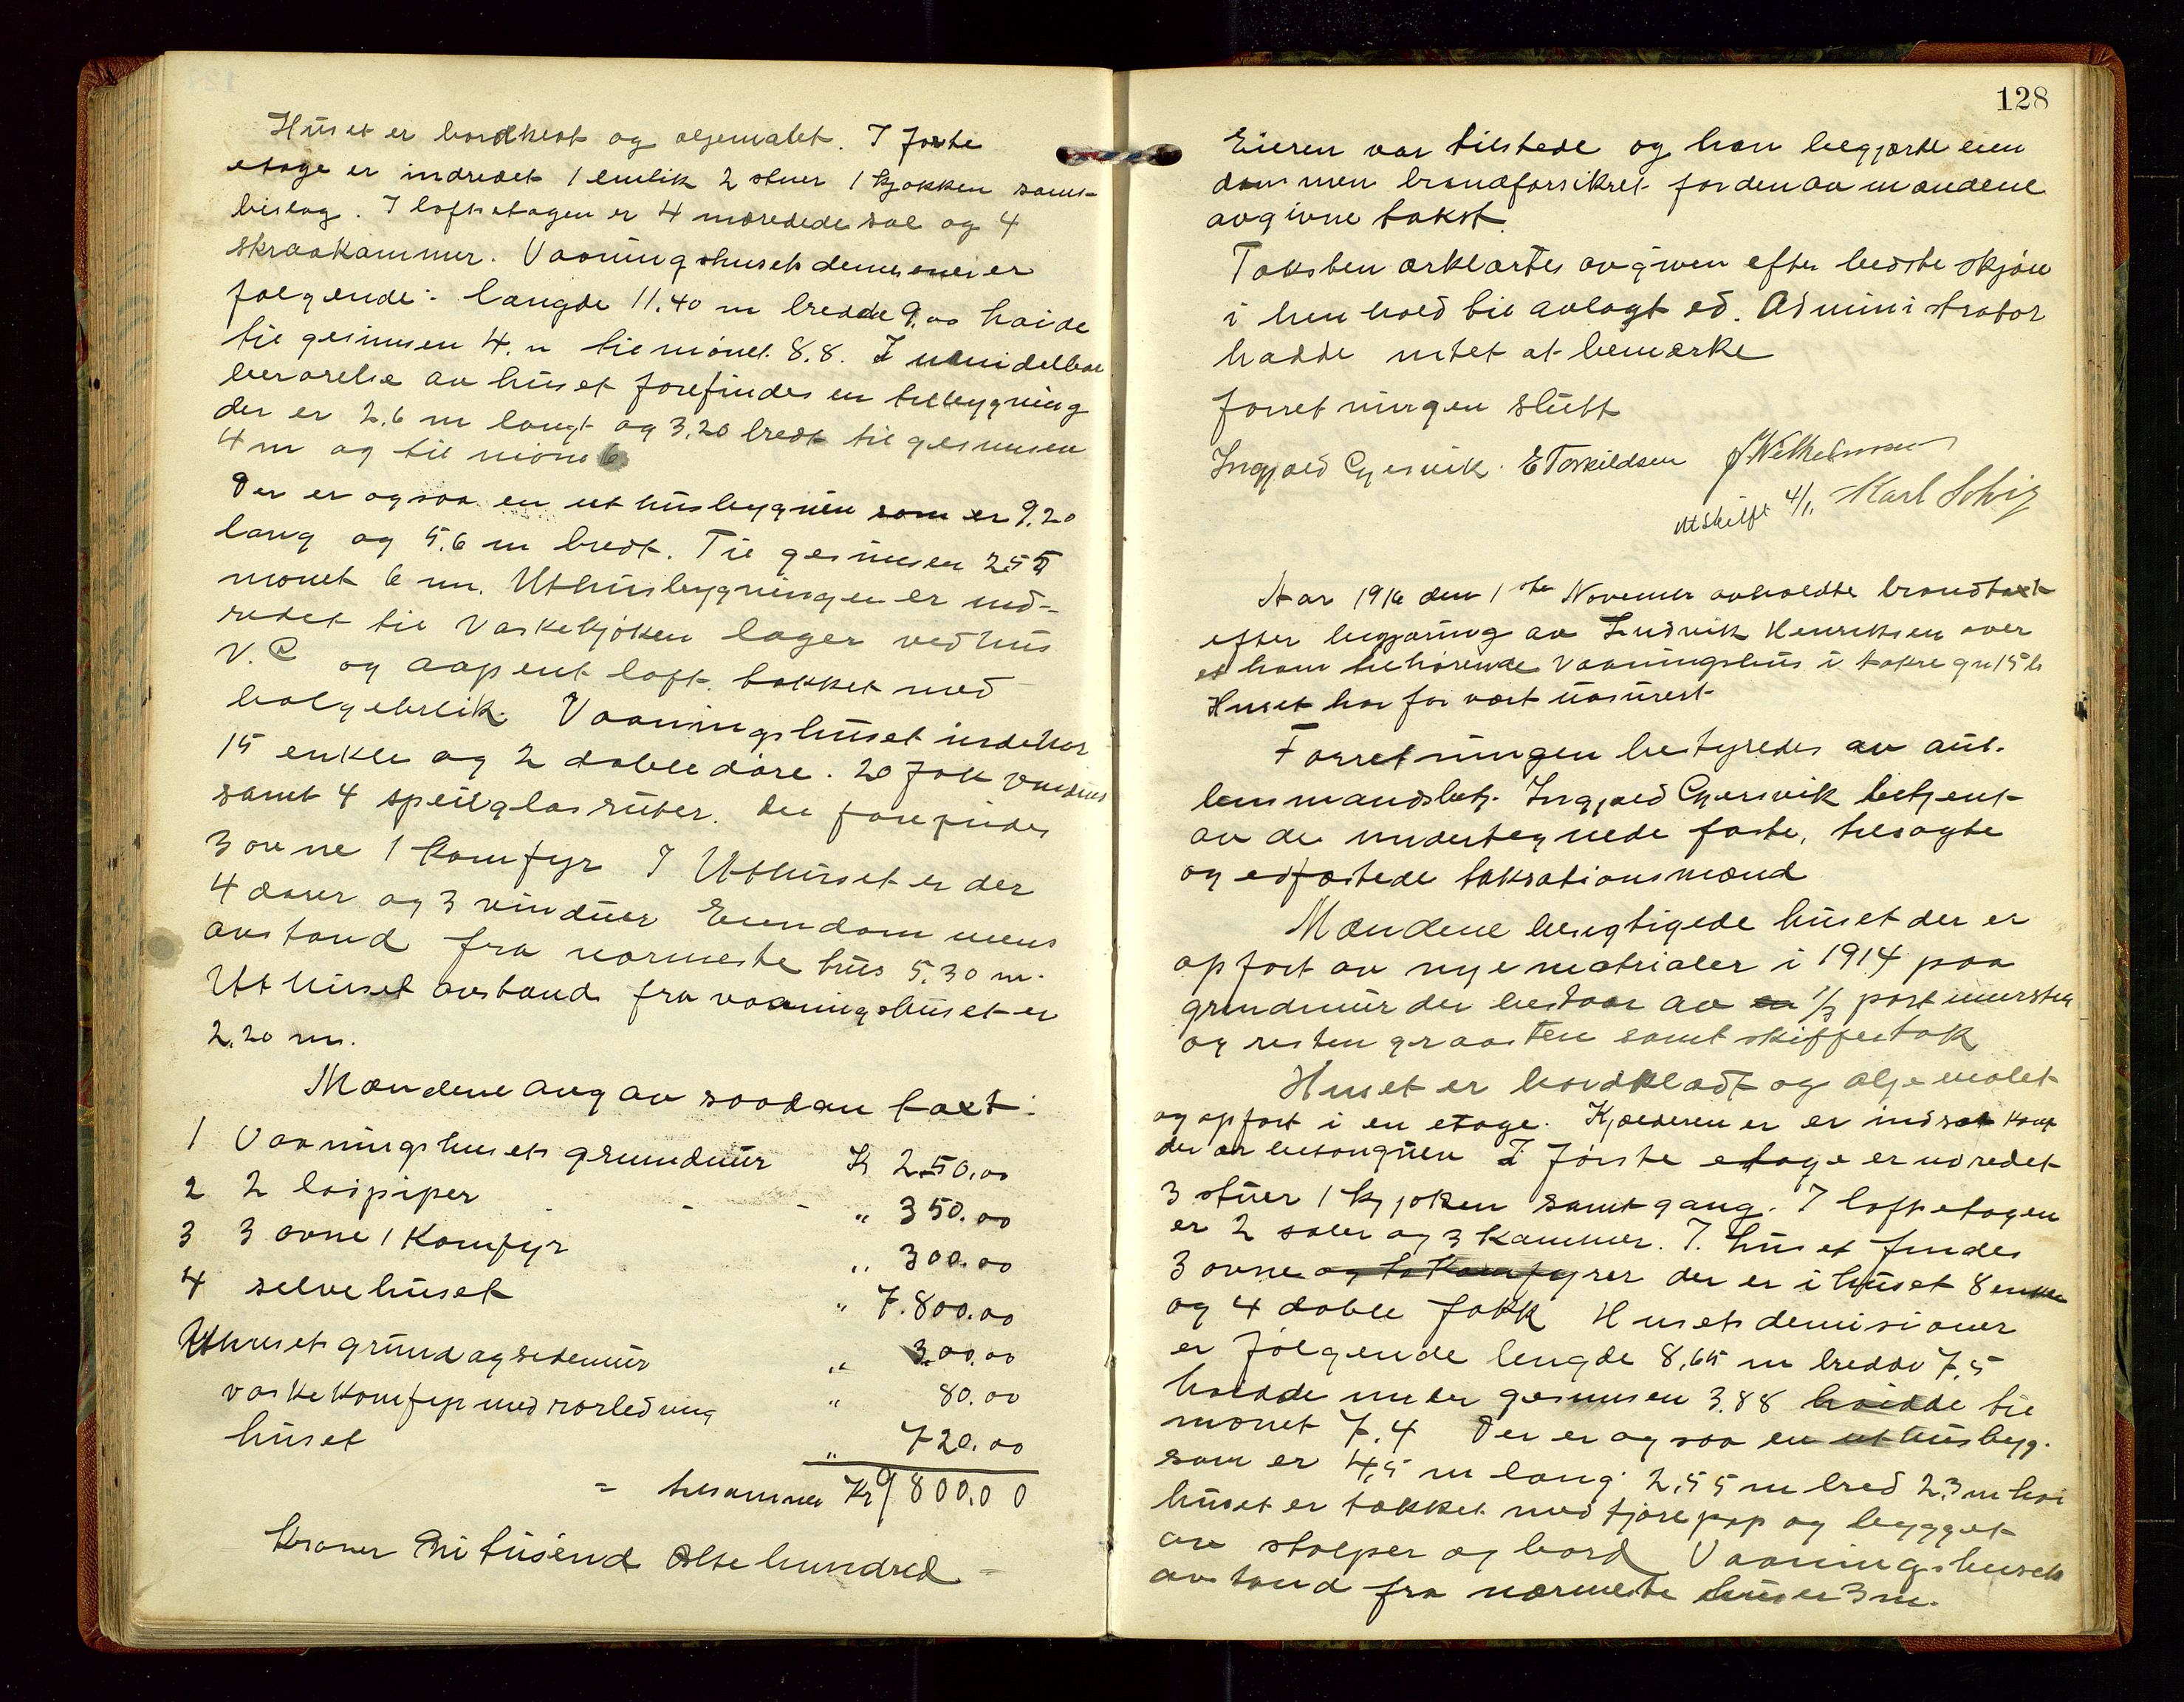 Huset er bordklæt og oljemalet. I forste
etage er indredet 1 butik 2 stuer 1 kjøkken samt
bislag. I loftsetagen er 4 indredede sal og 4
skraakammer. Vaaningshusets er
følgende: længde 11.40 m bredde 9.00 høide
til gesimsen 4. til mønet 8.8. I umidelbar
berørelse av huset forefindes en tilbygning
der er 2,6 m langt og 3,20 bredt til gesimsen
4 m og til møne 6
Der er ogsaa en uthusbygnin som er 9.20
lang og 5.6 m bredt. Til gesimsen 2.55
mønet 6 m. Uthusbygningen er ind-
redet til vaskekjøken lager vedhus
V.C og aapent loft. tækket med
bølgeblik. Vaaningshuset indehar
15 enkle og 2 doble døre. 20 fak vinduer
samt 4 speilglasruter. Der forefindes
3 ovne 1 komfyr I Uthuset er der
4 dører og 3 vinduer Eiendommens
avstand fra nærmeste hus 5.30 m.
Uthuset avstand fra vaaningshuset er
2.20 m.
Mændene avgav saadan taxt:
1 Vaaningshusets grundmur Kr 250.00
2 2 løipiper - - - " 350.00
3 3 ovne 1 Komfyr " 300.00
4 selve huset " 7.800.00
Uthusets grund og sidemur " 300.00
vaskekomfyr med rørledning " 80.00
huset " 720.00
= tilsammen Kr 9800.00
Kroner Ni tusend Otte hundred =
128
Eieren var tilstede og han begjærte eien
dommen brandforsikret for den av mændene
avgivne takst.
Taksten erklærtes avgiven efter bedste skjøn
i henhold til avlagt ed. Administrator
hadde intet at bemerke
Forretningen slutt
Ingjald Gjersvik. E Torkildsen J Wilhelmsen
Utskrift 4/1. Karl Solvig
Aar 1916 den 1ste November avholdte brandtaxt
efter begjæring av Ludvik Henriksen over
et ham tilhørende Vaaningshus i gn 15 b
Huset har før vært uasurert
Forretningen bestyredes av aut.
lensmandsbetj. Ingjald Gjersvik betjent
av de undertegnede faste, tilsagte
og edfæstede taksationsmænd
Mændene besigtigede huset der er
opført av nye matrialer i 1914 paa
grundmur der bestaar av en 1/3 part mursten
og resten graasten samt skiffertak
Huset er bordklædt og oljemalet
og opført i en etage. Kjælderen er er indsat
der av betongnen I første etage er indredet
3 stuer 1 kjøken samt gang. I loftsetagen
er 2 saler og 3 kammer. I. huset findes
3 ovne og to Komfyrer der er i huset 8 enkle
og 4 doble fakk Husets demisioner
er følgende lengde 8,65 m bredde 7,5
høidde under gesimsen 3.88 høidde til
mønet 7.4 Der er ogsaa en uthusbyg.
som er 4,5 m lang 2,55 m bred 2,3 m høi
huset er tækket med tjærepap og bygget
av stolper og bord Vaaningshusets
avstand fra nærmeste hus er 3 m.